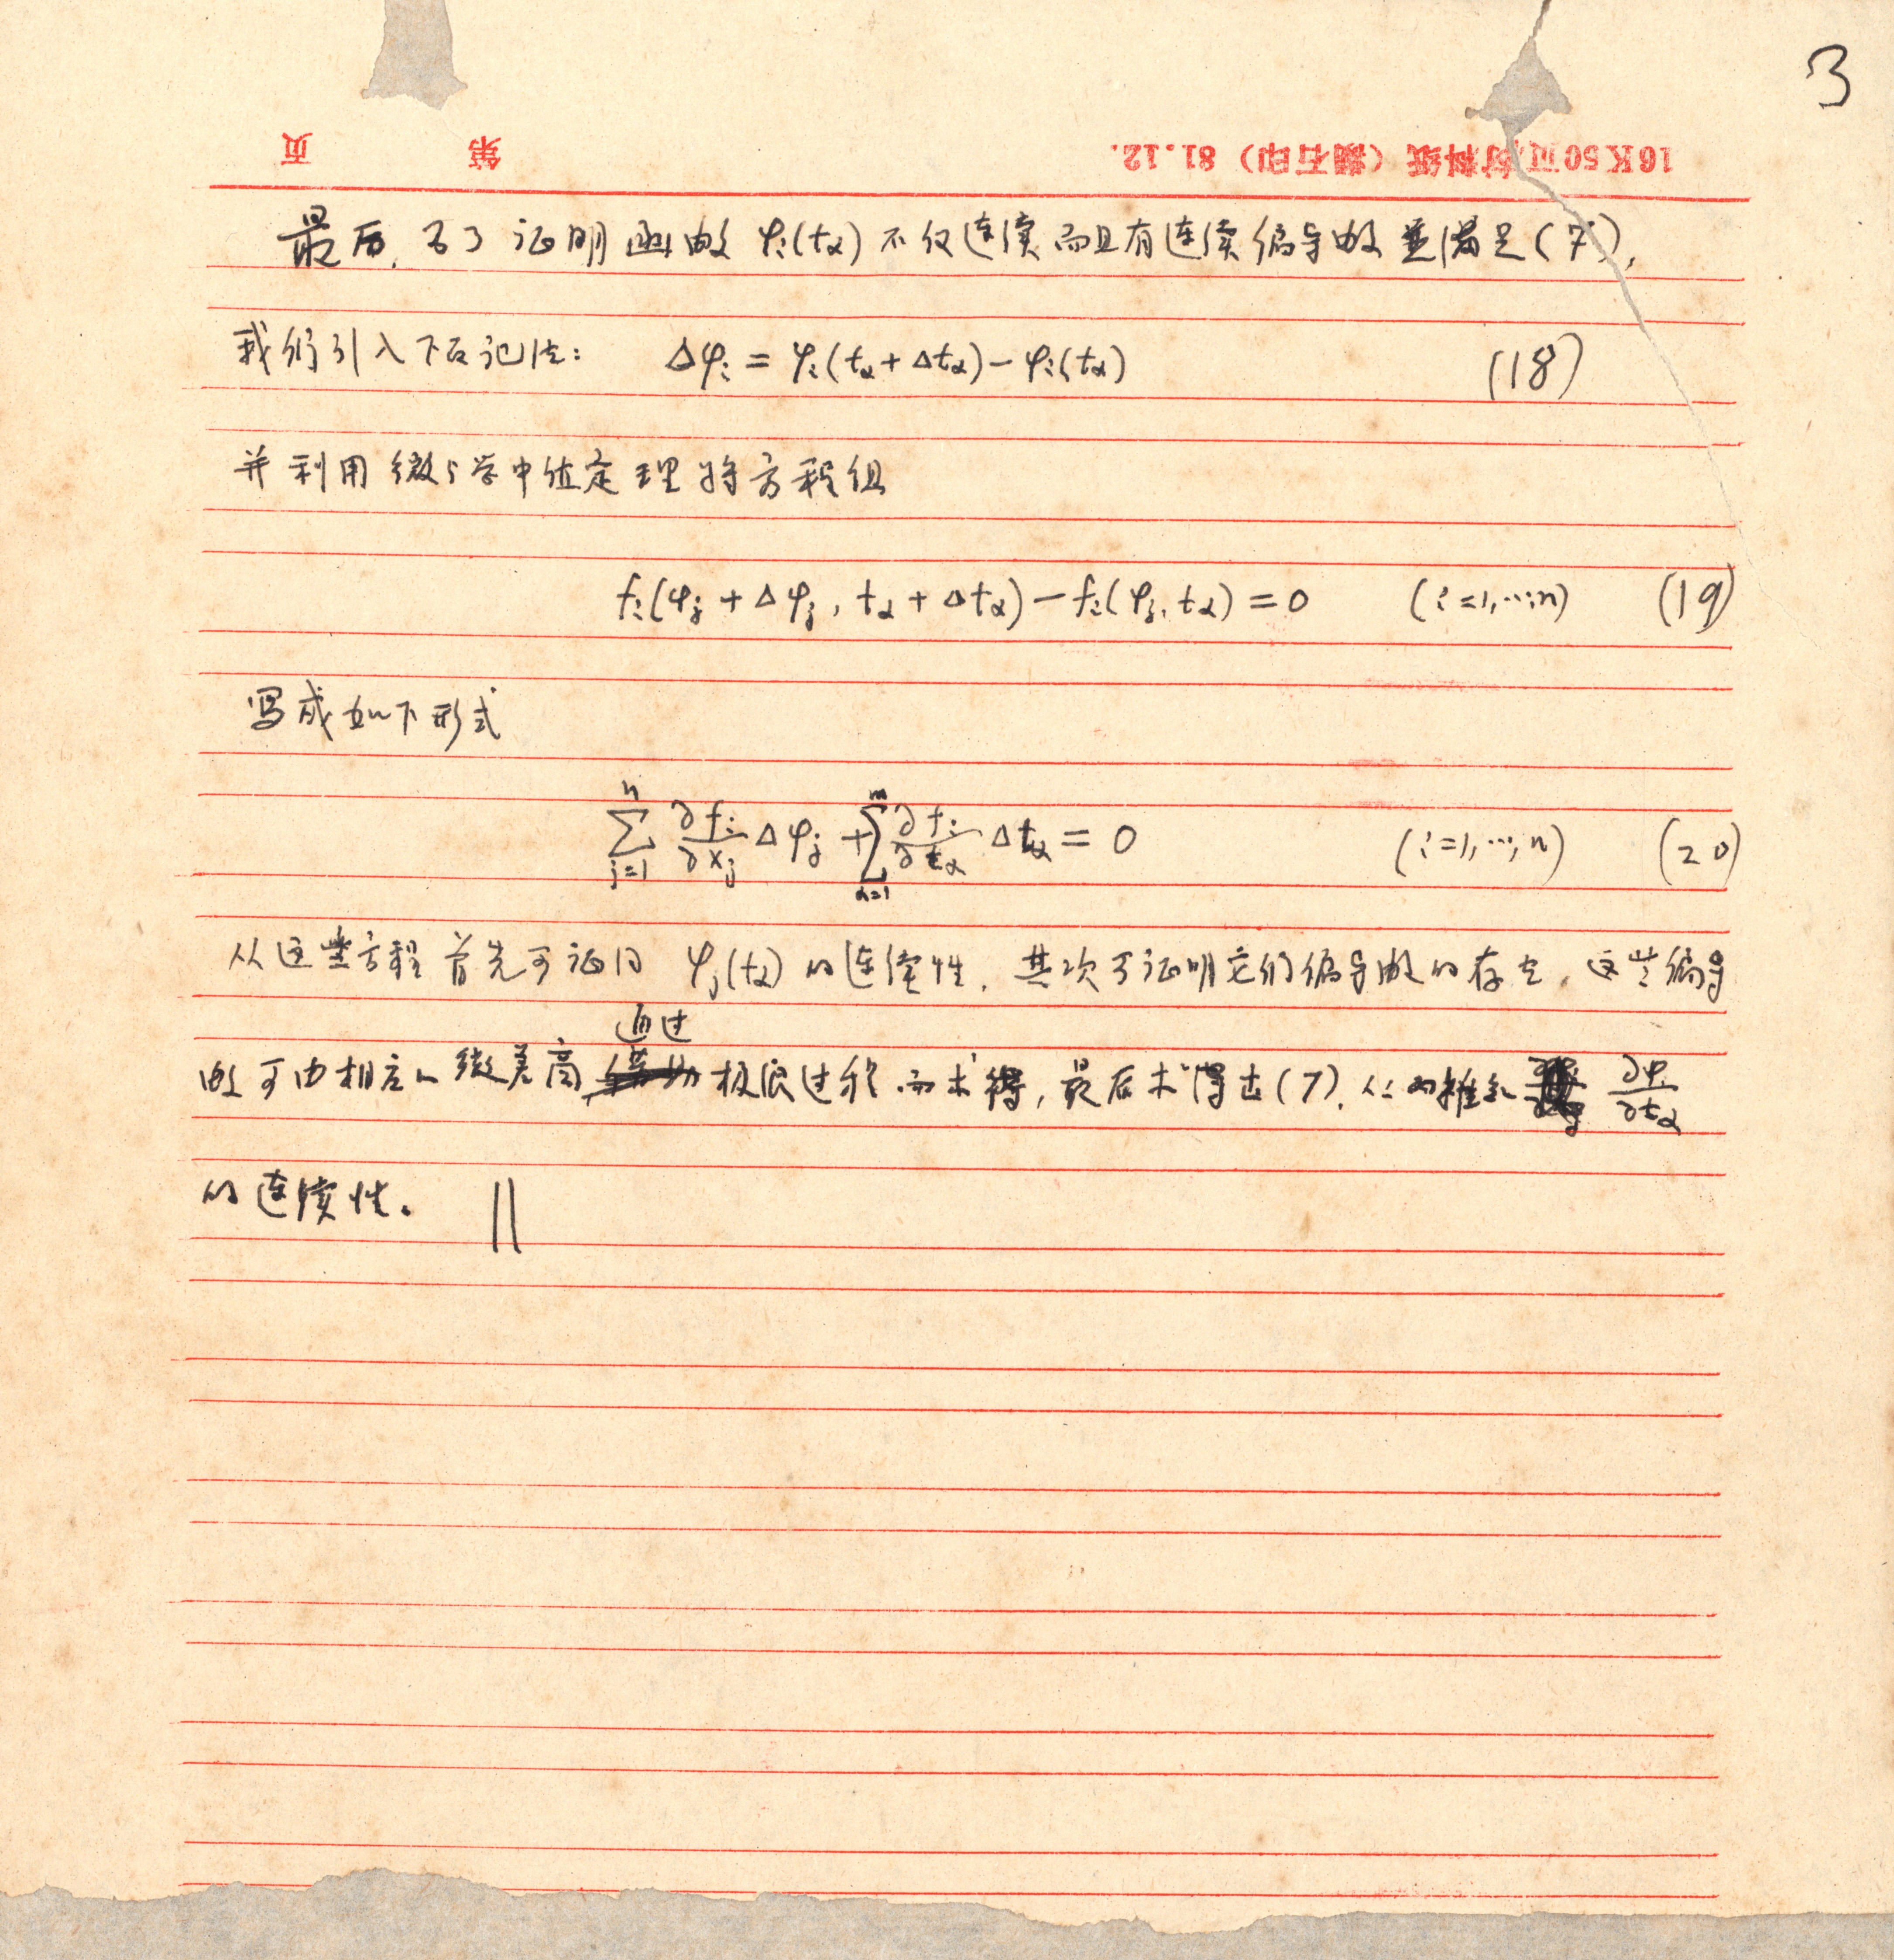 3
16K50页材料纸（浏石印）81.12.
第 页
最后,为了证明函数 φᵢ(t_α) 不仅连续而且有连续偏导数并满足(7),
我们引入下面记法: Δφᵢ = φᵢ(t_α + Δt_α) − φᵢ(t_α) (18)
并利用微分学中值定理将方程组
fᵢ(φⱼ + Δφⱼ, t_α + Δt_α) − fᵢ(φⱼ, t_α) = 0 (i=1,…,n) (19)
写成如下形式
∑_{j=1}^{n} ∂fᵢ/∂xⱼ Δφⱼ + ∑_{α=1}^{m} ∂fᵢ/∂t_α Δt_α = 0 (i=1,…,n) (20)
从这些方程首先可证明 φⱼ(t_α) 的连续性. 其次可证明它们偏导数的存在, 这些偏导
通过
数可由相应的微差商 极限过程而求得, 最后求得出(7). 从而推知 ∂φᵢ/∂t_α
的连续性。 ||